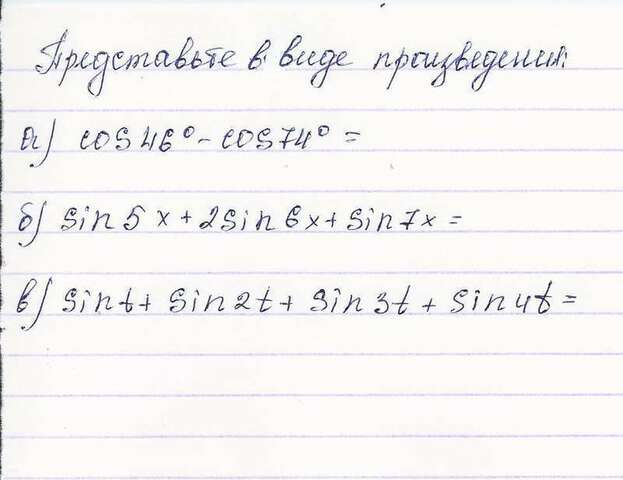 Представьте в виде произведения:
а) cos 46° - cos 74° =
б) sin 5x + 2sin 6x + sin 7x =
в) sin t + sin 2t + sin 3t + sin 4t =